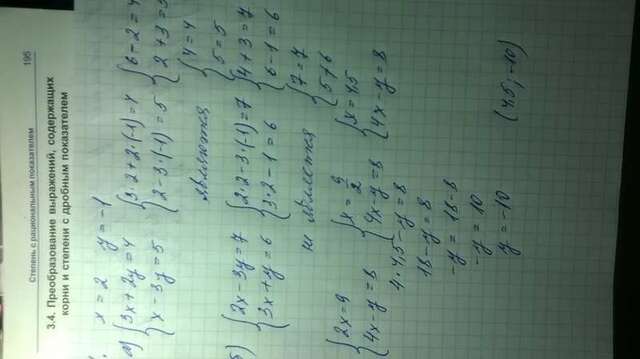 Степень с рациональным показателем 195
3.4. Преобразование выражений, содержащих
корни и степени с дробным показателем
x = 2 y = -1
а) {3x + 2y = 4 {3·2 + 2·(-1) = 4 {6 - 2 = 4
{x - 3y = 5 {2 - 3·(-1) = 5 {2 + 3 = 5
{4 = 4
{5 = 5
является
б) {2x - 3y = 7 {2·2 - 3·(-1) = 7 {4 + 3 = 7
{3x + y = 6 {3·2 - 1 = 6 {6 - 1 = 6
{7 = 7
{5 ≠ 6
не является
{2x = 9 {x = 9/2 {x = 4,5
{4x - y = 8 {4x - y = 8 {4x - y = 8
4·4,5 - y = 8
18 - y = 8
-y = 18 - 8
-y = 10
y = -10
(4,5; -10)